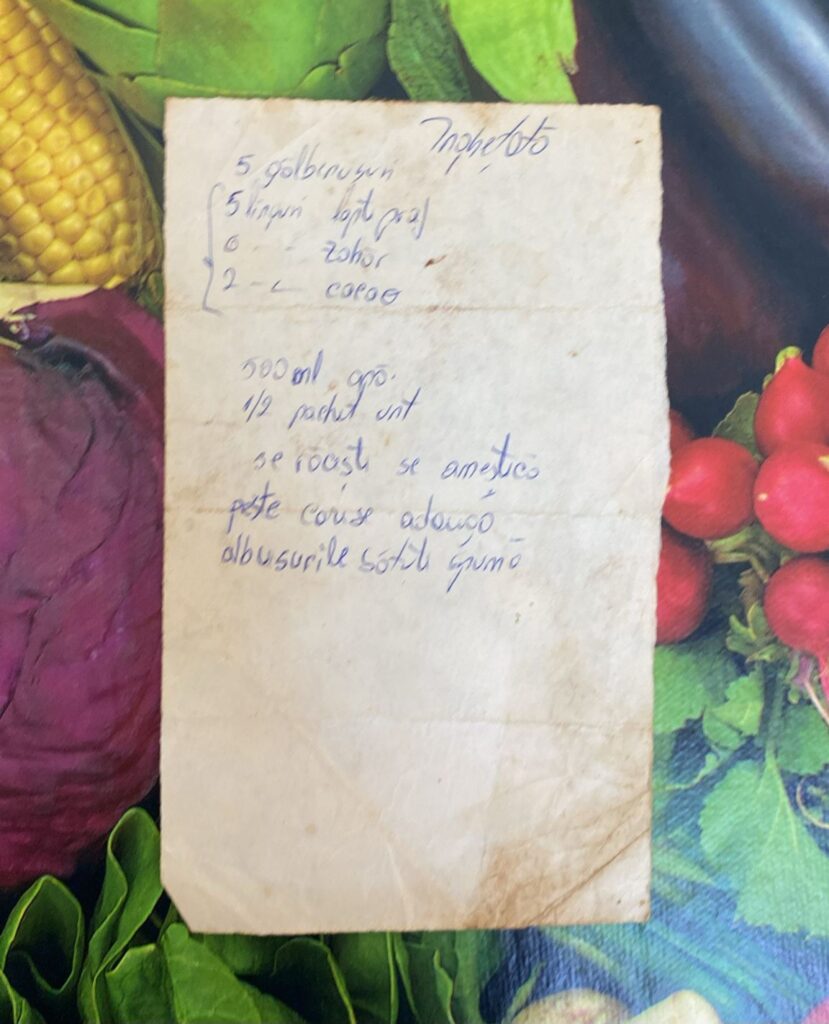 Înghețată
5 gălbenușuri
5 linguri lapte praf
6 - " - zahăr
2 - " - cacao
500 ml apă.
1/2 pachet unt
se răcește se amestică
peste care se adaugă
albușurile bătute spumă